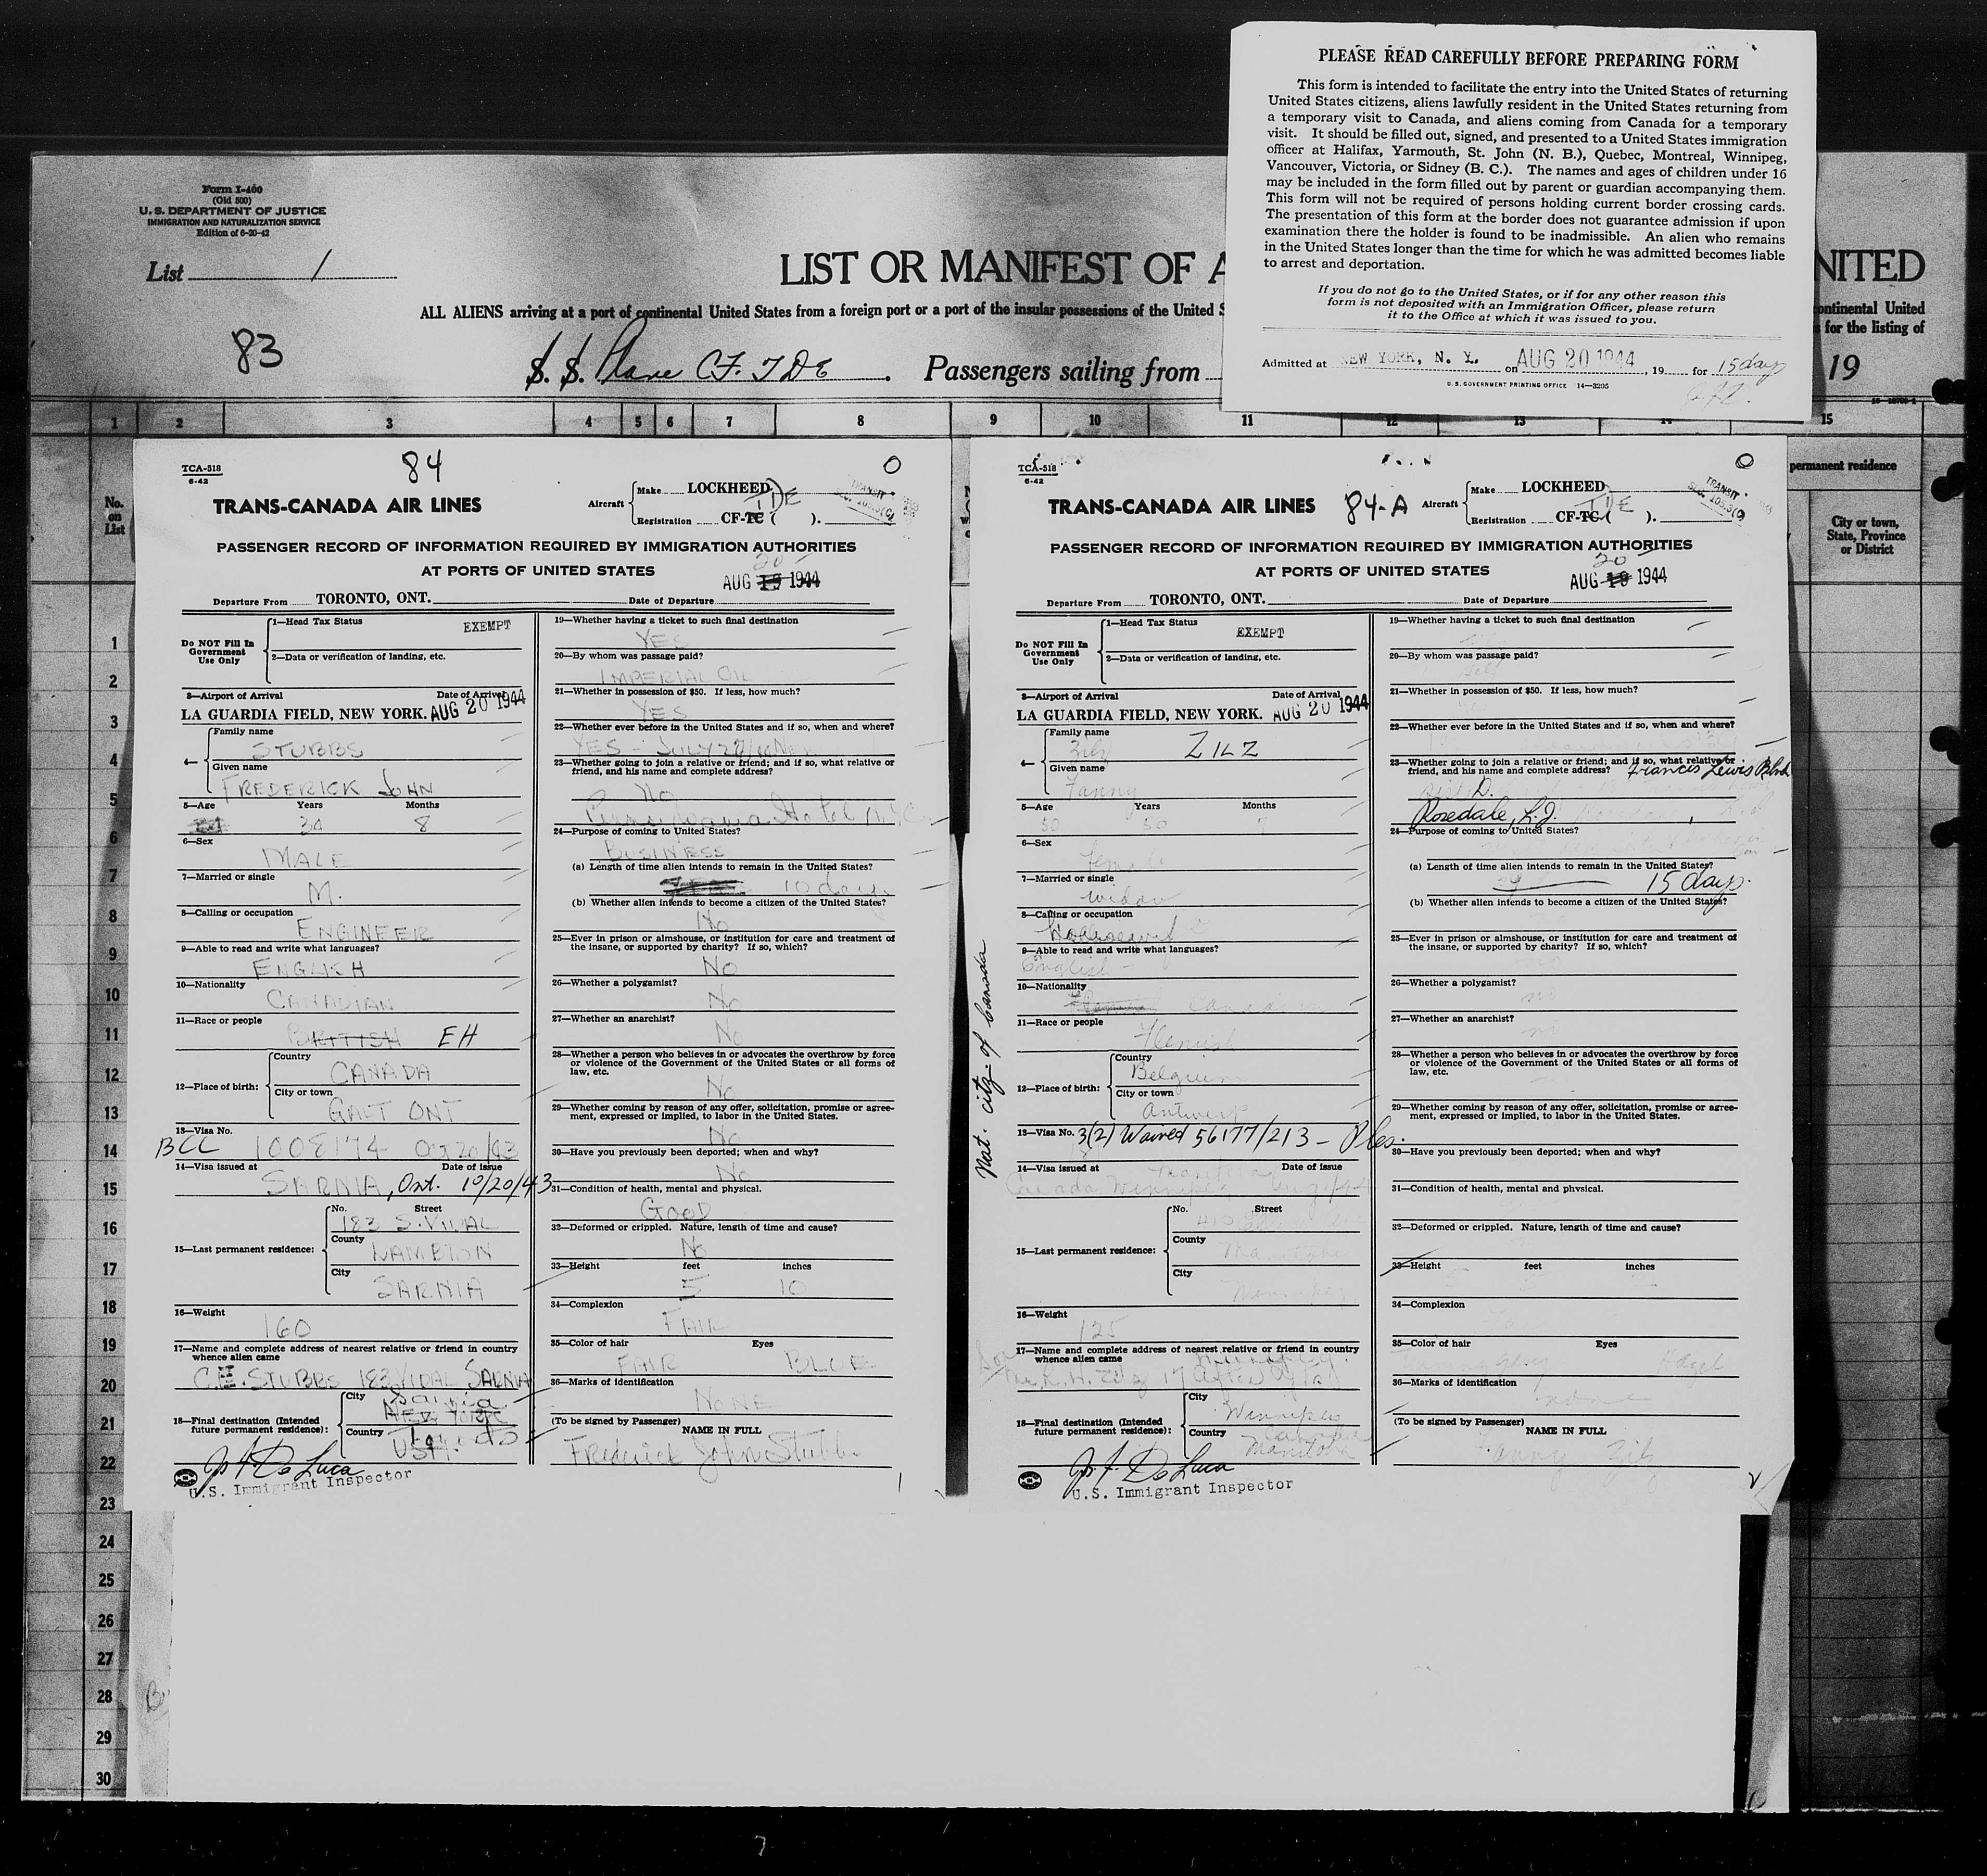 PLEASE READ CAREFULLY BEFORE PREPARING FORM
This form is intended to facilitate the entry into the United States of returning
United States citizens, aliens lawfully resident in the United States returning from
a temporary visit to Canada, and aliens coming from Canada for a temporary
visit. It should be filled out, signed, and presented to a United States immigration
officer at Halifax, Yarmouth, St. John (N. B.), Quebec, Montreal, Winnipeg,
Vancouver, Victoria, or Sidney (B. C.). The names and ages of children under 16
may be included in the form filled out by parent or guardian accompanying them.
This form will not be required of persons holding current border crossing cards.
The presentation of this form at the border does not guarantee admission if upon
examination there the holder is found to be inadmissible. An alien who remains
in the United States longer than the time for which he was admitted becomes liable
to arrest and deportation.
If you do not go to the United States, or if for any other reason this
form is not deposited with an Immigration Officer, please return
it to the Office at which it was issued to you.
Admitted at NEW YORK, N. Y. on AUG 20 1944, 19 for 15 days
U.S. GOVERNMENT PRINTING OFFICE 14-3205
Form I-400
(Old 500)
U. S. DEPARTMENT OF JUSTICE
IMMIGRATION AND NATURALIZATION SERVICE
Edition of 6-20-42
List 1
LIST OR MANIFEST OF A
NITED
ALL ALIENS arriving at a port of continental United States from a foreign port or a port of the insular possessions of the United S
ontinental United
s for the listing of
83
S. S. Plane CF. TDE. Passengers sailing from
19
1 2 3 4 5 6 7 8 9 10 11 12 13 14 15
No. on List
permanent residence
City or town, State, Province or District
1
2
3
4
5
6
7
8
9
10
11
12
13
14
15
16
17
18
19
20
21
22
23
24
25
26
27
28
29
30
TCA-518
6-42
84
O
TRANS-CANADA AIR LINES
Aircraft
Make LOCKHEED
Registration CF-TC ( ). TDE
TRANSIT
SEC. 105.3(c)
PASSENGER RECORD OF INFORMATION REQUIRED BY IMMIGRATION AUTHORITIES
AT PORTS OF UNITED STATES
AUG 19 1944 20
Departure From TORONTO, ONT. Date of Departure
Do NOT Fill In Government Use Only
1—Head Tax Status EXEMPT
2—Data or verification of landing, etc.
3—Airport of Arrival Date of Arrival
LA GUARDIA FIELD, NEW YORK. AUG 20 1944
4—
Family name
STUBBS
Given name
FREDERICK JOHN
5—Age Years Months
34 8
6—Sex
MALE
7—Married or single
M.
8—Calling or occupation
ENGINEER
9—Able to read and write what languages?
ENGLISH
10—Nationality
CANADIAN
11—Race or people
BRITISH EH
12—Place of birth:
Country
CANADA
City or town
GALT ONT
13—Visa No.
BCC 1008174 Oct 20/43
14—Visa issued at Date of issue
SARNIA, Ont. 10/20/43
15—Last permanent residence:
No. Street
183 S. VIDAL
County
LAMBTON
City
SARNIA
16—Weight
160
17—Name and complete address of nearest relative or friend in country
whence alien came
C.E. STUBBS 183 VIDAL SARNIA
18—Final destination (Intended
future permanent residence):
City
Sarnia
NEW YORK
Country
USA.
J. F. De Luca
U.S. Immigrant Inspector
19—Whether having a ticket to such final destination
YES
20—By whom was passage paid?
IMPERIAL OIL
21—Whether in possession of $50. If less, how much?
YES
22—Whether ever before in the United States and if so, when and where?
YES - JULY
23—Whether going to join a relative or friend; and if so, what relative or
friend, and his name and complete address?
No
Pennsylvania Hotel N.Y.C.
24—Purpose of coming to United States?
BUSINESS
(a) Length of time alien intends to remain in the United States?
10 days
(b) Whether alien intends to become a citizen of the United States?
No
25—Ever in prison or almshouse, or institution for care and treatment of
the insane, or supported by charity? If so, which?
No
26—Whether a polygamist?
No
27—Whether an anarchist?
No
28—Whether a person who believes in or advocates the overthrow by force
or violence of the Government of the United States or all forms of
law, etc.
No
29—Whether coming by reason of any offer, solicitation, promise or agree-
ment, expressed or implied, to labor in the United States.
No
30—Have you previously been deported; when and why?
No
31—Condition of health, mental and physical.
GOOD
32—Deformed or crippled. Nature, length of time and cause?
No
33—Height feet inches
5 10
34—Complexion
FAIR
35—Color of hair Eyes
FAIR BLUE
36—Marks of identification
NONE
(To be signed by Passenger) NAME IN FULL
Frederick John Stubbs
TCA-518
6-42
O
TRANS-CANADA AIR LINES 84-A
Aircraft
Make LOCKHEED
Registration CF-TC ( ). TDE
TRANSIT
SEC. 105.3(c)
PASSENGER RECORD OF INFORMATION REQUIRED BY IMMIGRATION AUTHORITIES
AT PORTS OF UNITED STATES
AUG 19 1944 20
Departure From TORONTO, ONT. Date of Departure
Do NOT Fill In Government Use Only
1—Head Tax Status EXEMPT
2—Data or verification of landing, etc.
3—Airport of Arrival Date of Arrival
LA GUARDIA FIELD, NEW YORK. AUG 20 1944
4—
Family name
Zilz ZILZ
Given name
Fanny
5—Age Years Months
50 50
6—Sex
female
7—Married or single
widow
8—Calling or occupation
9—Able to read and write what languages?
English
10—Nationality
Canadian
11—Race or people
Flemish
12—Place of birth:
Country
Belgium
City or town
Antwerp
Nat. citz. of Canada
13—Visa No. 3(2) Waived 56177/213 -
14—Visa issued at Date of issue
Canada Winnipeg
15—Last permanent residence:
No. Street
410
County
Manitoba
City
Winnipeg
16—Weight
125
17—Name and complete address of nearest relative or friend in country
whence alien came
18—Final destination (Intended
future permanent residence):
City
Winnipeg
Country
Canada
Manitoba
J. F. De Luca
U.S. Immigrant Inspector
19—Whether having a ticket to such final destination
20—By whom was passage paid?
21—Whether in possession of $50. If less, how much?
22—Whether ever before in the United States and if so, when and where?
23—Whether going to join a relative or friend; and if so, what relative or
friend, and his name and complete address? Francis Lewis Blvd
Rosedale, L.I.
24—Purpose of coming to United States?
(a) Length of time alien intends to remain in the United States?
15 days.
(b) Whether alien intends to become a citizen of the United States?
25—Ever in prison or almshouse, or institution for care and treatment of
the insane, or supported by charity? If so, which?
26—Whether a polygamist?
no
27—Whether an anarchist?
no
28—Whether a person who believes in or advocates the overthrow by force
or violence of the Government of the United States or all forms of
law, etc.
29—Whether coming by reason of any offer, solicitation, promise or agree-
ment, expressed or implied, to labor in the United States.
30—Have you previously been deported; when and why?
31—Condition of health, mental and physical.
32—Deformed or crippled. Nature, length of time and cause?
33—Height feet inches
34—Complexion
35—Color of hair Eyes
Hazel
36—Marks of identification
none
(To be signed by Passenger) NAME IN FULL
Fanny Zilz